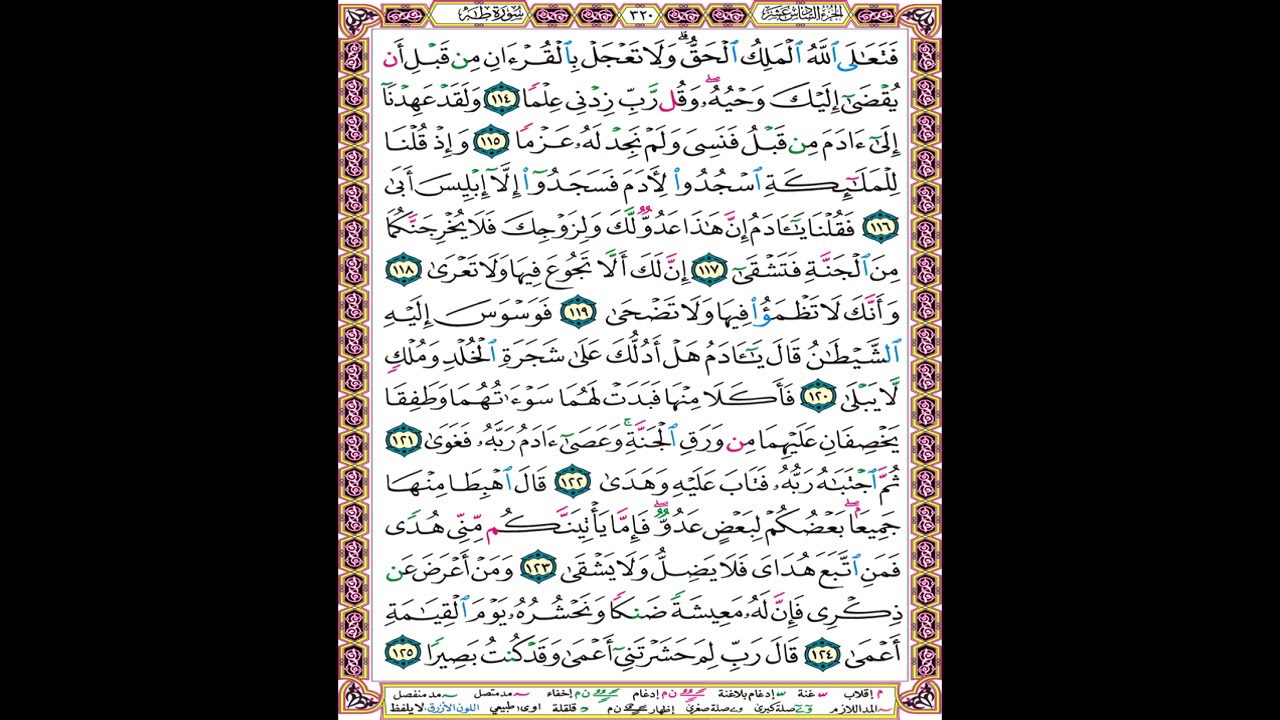 الجزء السادس عشر ٣٢٠ سورة طه
فَتَعَٰلَى ٱللَّهُ ٱلْمَلِكُ ٱلْحَقُّ ۗ وَلَا تَعْجَلْ بِٱلْقُرْءَانِ مِن قَبْلِ أَن
يُقْضَىٰٓ إِلَيْكَ وَحْيُهُۥ ۖ وَقُل رَّبِّ زِدْنِى عِلْمًا ١١٤ وَلَقَدْ عَهِدْنَآ
إِلَىٰٓ ءَادَمَ مِن قَبْلُ فَنَسِىَ وَلَمْ نَجِدْ لَهُۥ عَزْمًا ١١٥ وَإِذْ قُلْنَا
لِلْمَلَٰٓئِكَةِ ٱسْجُدُوا۟ لِءَادَمَ فَسَجَدُوٓا۟ إِلَّآ إِبْلِيسَ أَبَىٰ
١١٦ فَقُلْنَا يَٰٓـَٔادَمُ إِنَّ هَٰذَا عَدُوٌّ لَّكَ وَلِزَوْجِكَ فَلَا يُخْرِجَنَّكُمَا
مِنَ ٱلْجَنَّةِ فَتَشْقَىٰٓ ١١٧ إِنَّ لَكَ أَلَّا تَجُوعَ فِيهَا وَلَا تَعْرَىٰ ١١٨
وَأَنَّكَ لَا تَظْمَؤُا۟ فِيهَا وَلَا تَضْحَىٰ ١١٩ فَوَسْوَسَ إِلَيْهِ
ٱلشَّيْطَٰنُ قَالَ يَٰٓـَٔادَمُ هَلْ أَدُلُّكَ عَلَىٰ شَجَرَةِ ٱلْخُلْدِ وَمُلْكٍ
لَّا يَبْلَىٰ ١٢٠ فَأَكَلَا مِنْهَا فَبَدَتْ لَهُمَا سَوْءَٰتُهُمَا وَطَفِقَا
يَخْصِفَانِ عَلَيْهِمَا مِن وَرَقِ ٱلْجَنَّةِ ۚ وَعَصَىٰٓ ءَادَمُ رَبَّهُۥ فَغَوَىٰ ١٢١
ثُمَّ ٱجْتَبَٰهُ رَبُّهُۥ فَتَابَ عَلَيْهِ وَهَدَىٰ ١٢٢ قَالَ ٱهْبِطَا مِنْهَا
جَمِيعًۢا ۖ بَعْضُكُمْ لِبَعْضٍ عَدُوٌّ ۖ فَإِمَّا يَأْتِيَنَّكُم مِّنِّى هُدًى
فَمَنِ ٱتَّبَعَ هُدَاىَ فَلَا يَضِلُّ وَلَا يَشْقَىٰ ١٢٣ وَمَنْ أَعْرَضَ عَن
ذِكْرِى فَإِنَّ لَهُۥ مَعِيشَةً ضَنكًا وَنَحْشُرُهُۥ يَوْمَ ٱلْقِيَٰمَةِ
أَعْمَىٰ ١٢٤ قَالَ رَبِّ لِمَ حَشَرْتَنِىٓ أَعْمَىٰ وَقَدْ كُنتُ بَصِيرًا ١٢٥
م إقلاب غنة إدغام بلاغنة ن م إدغام ن م إخفاء مد متصل مد منفصل
المد اللازم صلة كبرى صلة صغرى إظهار ن م قلقلة اوى طبيعي اللون الأزرق لا يلفظ